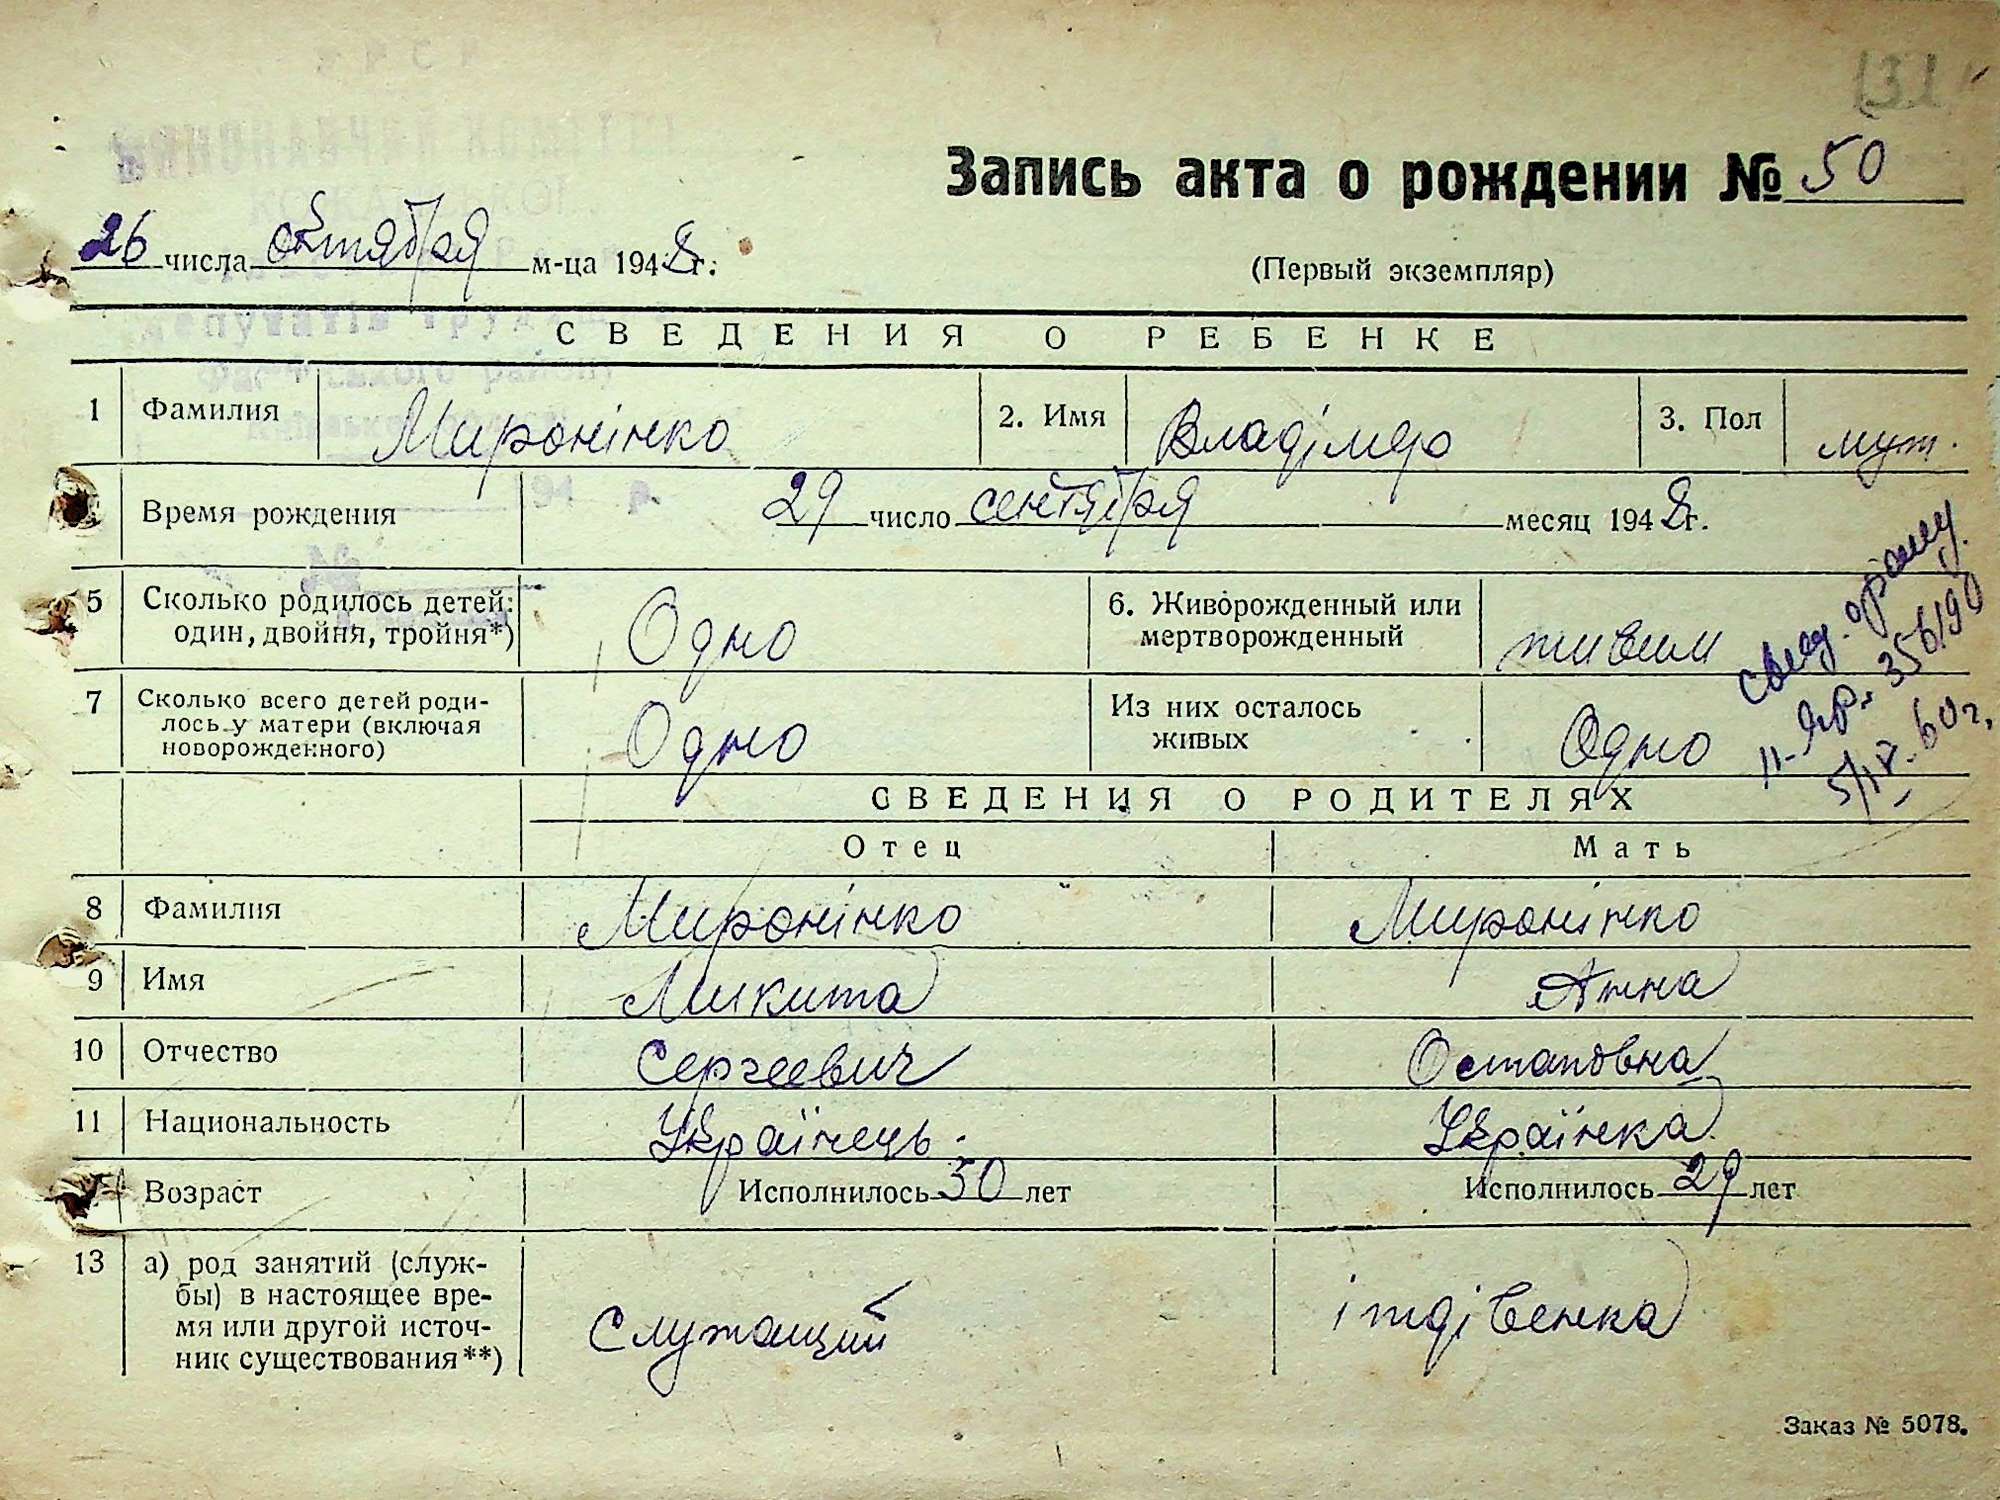 131
Запись акта о рождении № 50
26 числа октября м-ца 1948 г.
(Первый экземпляр)
СВЕДЕНИЯ О РЕБЕНКЕ
1 Фамилия Миронінко 2. Имя Владімір 3. Пол муж.
Время рождения 29 число сентября месяц 1948 г.
5 Сколько родилось детей: один, двойня, тройня*) Одно 6. Живорожденный или мертворожденный живим
7 Сколько всего детей родилось у матери (включая новорожденного) Одно Из них осталось живых Одно
свид. о
II-ЯР. 356190
5/IV-60г.
СВЕДЕНИЯ О РОДИТЕЛЯХ
Отец Мать
8 Фамилия Миронінко Миронінко
9 Имя Микита Анна
10 Отчество Сергеевич Остаповна
11 Национальность Українець. Українка
Возраст Исполнилось 30 лет Исполнилось 29 лет
13 а) род занятий (служ-
бы) в настоящее вре-
мя или другой источ-
ник существования**) Служащий іждівенка
Заказ № 5078.